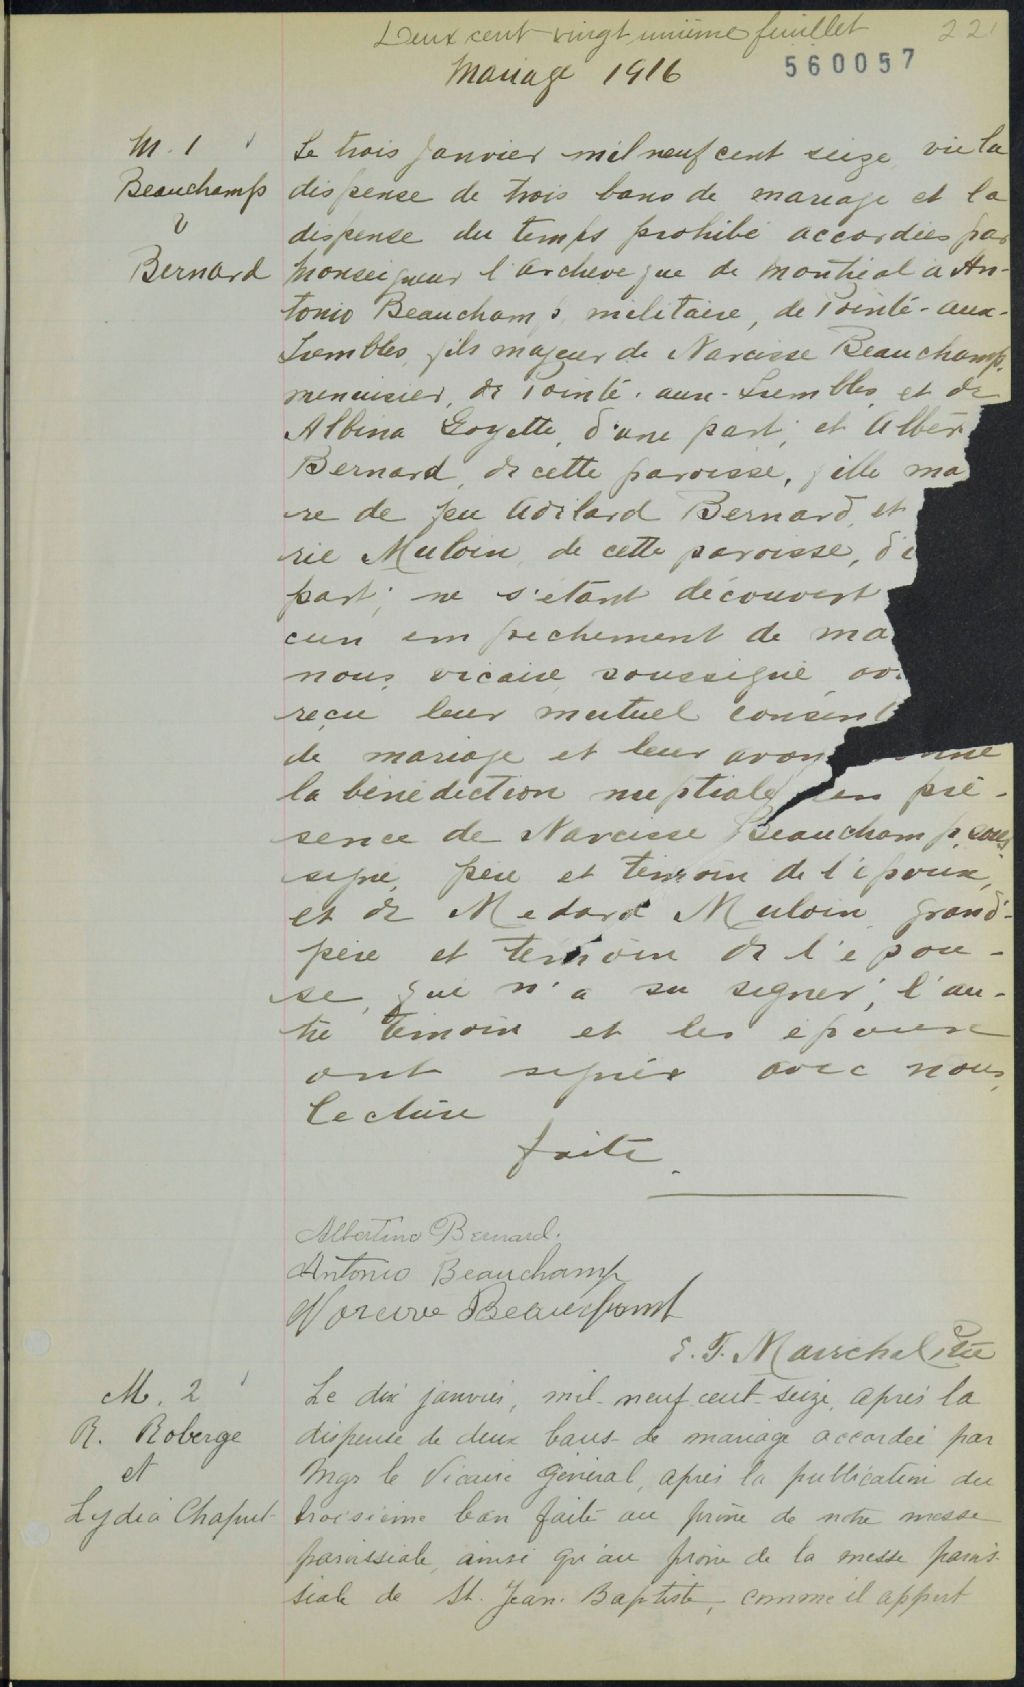 Deux cent vingt unième feuillet 221
Mariage 1916 560057
M. 1
Beauchamp
&
Bernard
Le trois janvier mil neuf cent seize, vu la
dispense de trois bans de mariage et la
dispense du temps prohibé accordées par
Monseigneur l'archevêque de Montréal à An-
tonio Beauchamp, militaire, de Pointe-aux-
Trembles, fils majeur de Narcisse Beauchamp,
menuisier, de Pointe-aux-Trembles, et de
Albina Goyette, d'une part; et Alber
Bernard, de cette paroisse, fille ma
re de feu Adélard Bernard, et
rie Muloin, de cette paroisse, d'
part; ne s'étant découvert
cun empêchement de ma
nous, vicaire soussigné, av
reçu leur mutuel consent
de mariage et leur avons
la bénédiction nuptiale en pré-
sence de Narcisse Beauchamp, sous-
signé, père et témoin de l'époux,
et de Médard Muloin, grand-
père et témoin de l'épou-
se, qui n'a su signer; l'au-
tre témoin et les époux
ont signé avec nous,
Lecture
faite.
Albertine Bernard.
Antonio Beauchamp
Narcisse Beauchamp
E. J. Marechal Ptre
M. 2
R. Roberge
et
Lydia Chaput
Le dix janvier, mil-neuf-cent-seize, après la
dispense de deux bans de mariage accordée par
Mgr le Vicaire Général, après la publication du
troisième ban faite au prône de notre messe
paroissiale, ainsi qu'au prône de la messe parois-
siale de St. Jean-Baptiste, comme il appert